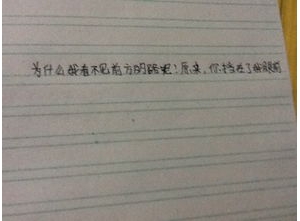 为什么我看不见前方的路呢！原来，你挡在了我眼前